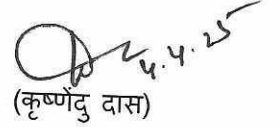 4.4.25
(कृष्णेंदु दास)